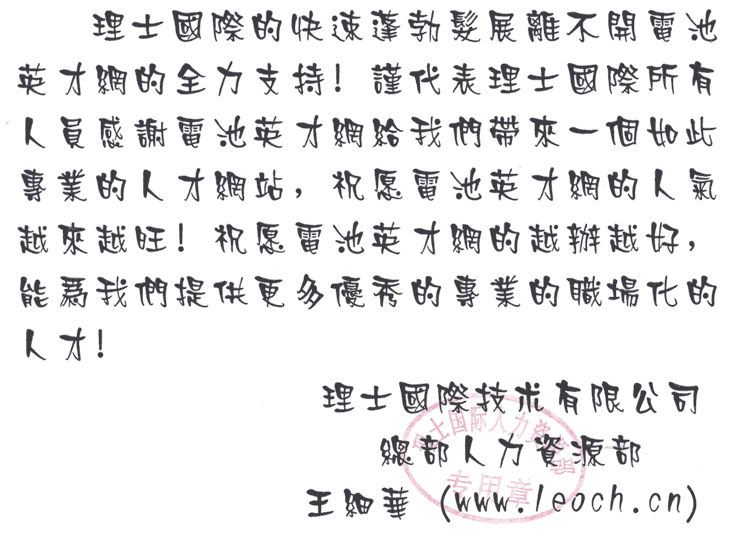 理士國際的快速蓬勃髮展離不開電池
英才網的全力支持！謹代表理士國際所有
人員感謝電池英才網給我們帶來一個如此
專業的人才網站，祝愿電池英才網的人氣
越來越旺！祝愿電池英才網的越辦越好，
能爲我們提供更多優秀的專業的職場化的
人才！
理士國際技术有限公司
總部人力資源部
王細華（www.leoch.cn）
士国际人力资
专用章